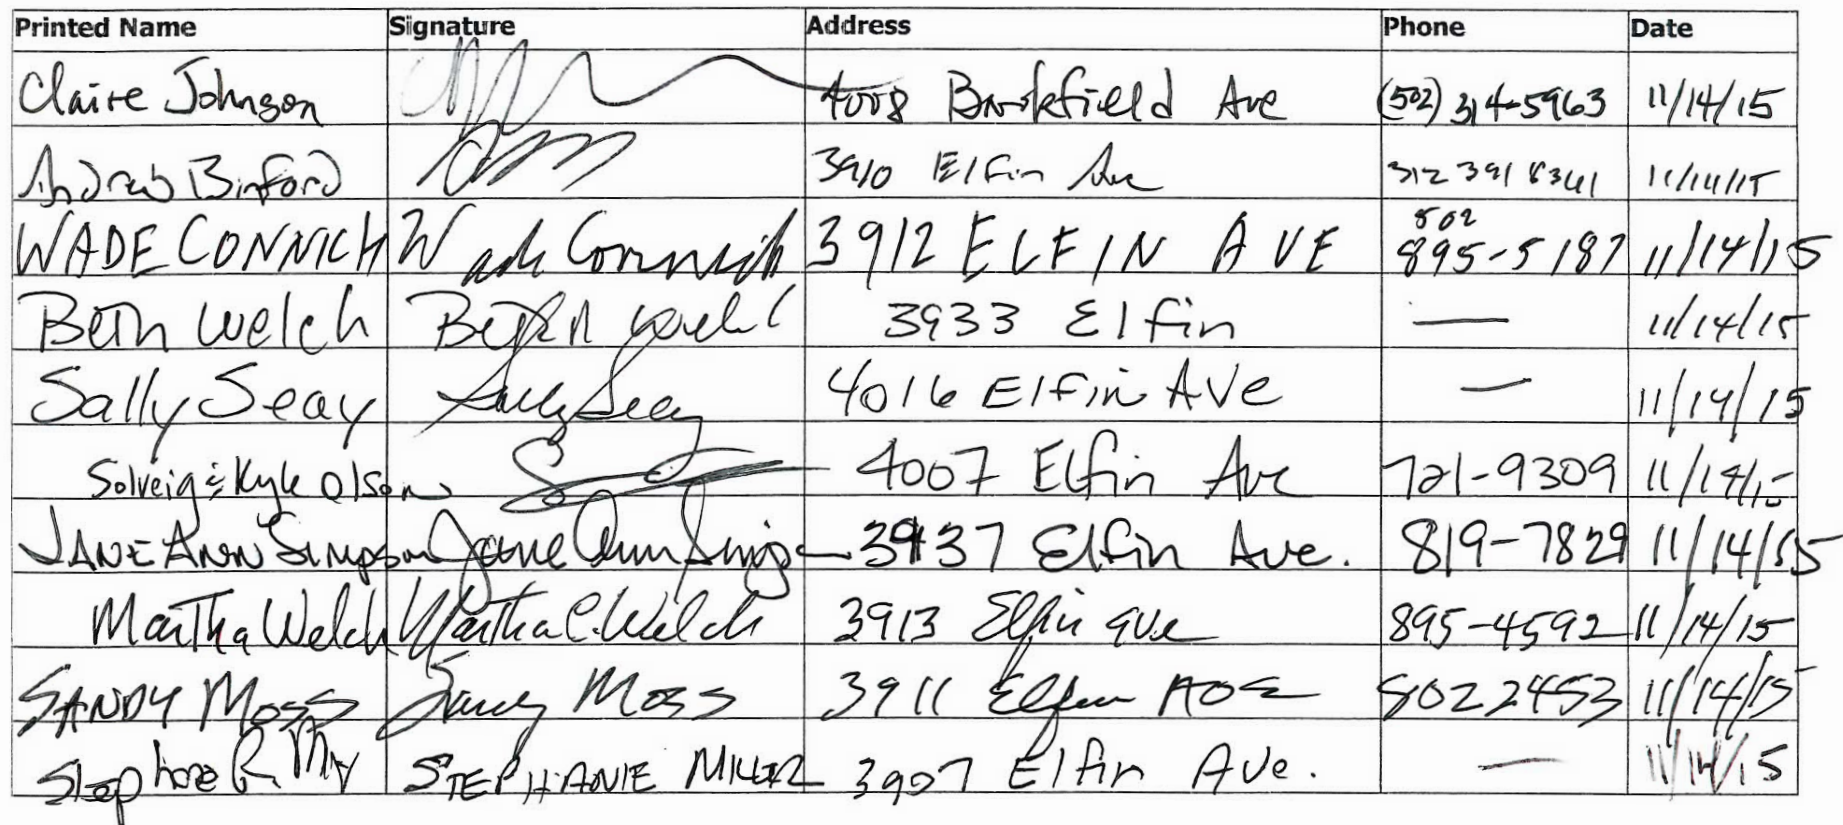 Printed Name Signature Address Phone Date
Claire Johnson 4008 Brookfield Ave (502) 314-5963 11/14/15
Andrew Binford 3910 Elfin Ave 312 391 8361 11/14/15
502
WADE CONNICH Wade Connich 3912 ELFIN AVE 895-5187 11/14/15
Beth Welch Beth Welch 3933 Elfin — 11/14/15
Sally Seay Sally Seay 4016 Elfin AVe — 11/14/15
Solveig & Kyle Olson 4007 Elfin Ave 721-9309 11/14/15
JANE ANN Simpson Jane Ann Simpson 3937 Elfin Ave. 819-7829 11/14/15
Martha Welch Martha C. Welch 3913 Elfin ave 895-4592 11/14/15
SANDY MOSS Sandy Moss 3911 Elfin AVE 8022453 11/14/15
STEPHANIE MILLER 3907 Elfin Ave. — 11/14/15